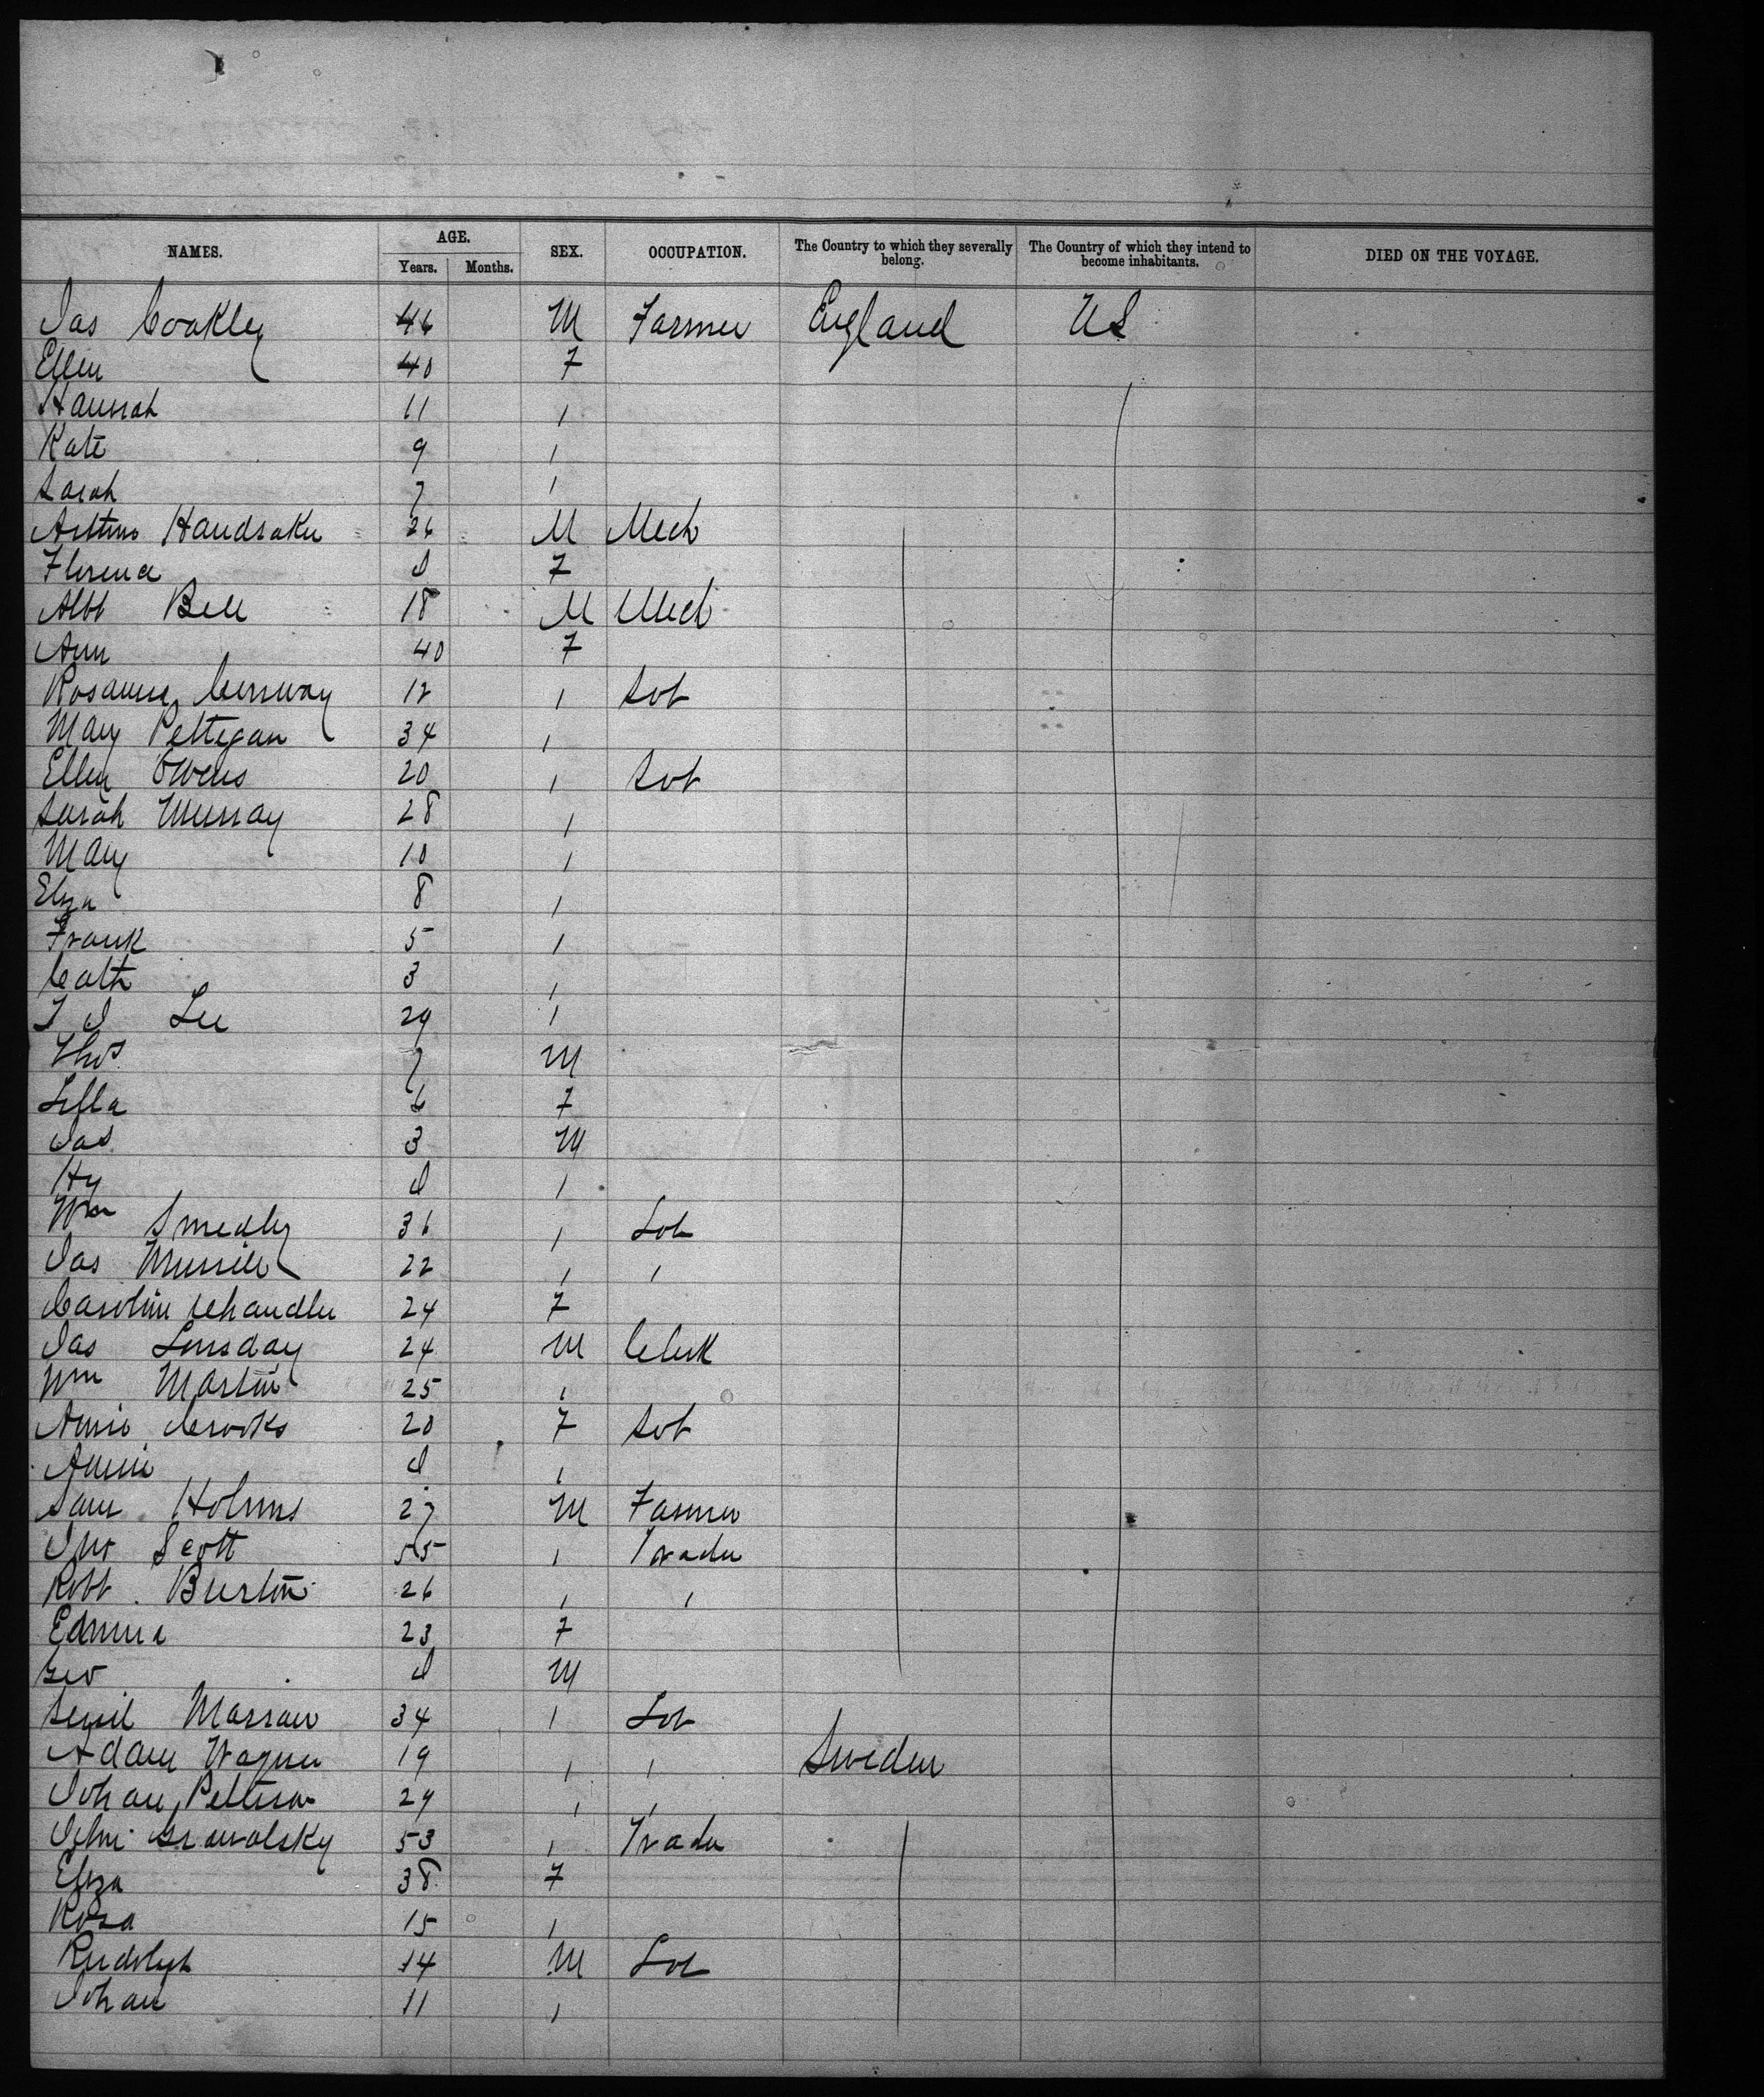 NAMES. AGE. Years. Months. SEX. OCCUPATION. The Country to which they severally belong. The Country of which they intend to become inhabitants. DIED ON THE VOYAGE.
Jas Coakley 46 M Farmer England US
Ellen 40 F
Hannah 11 "
Kate 9 "
Sarah 7 "
Arthur Handsaker 26 M Mech
Florence F
Albt Bell 18 M Mech
Ann 40 F
Rosanna Conway 12 "
Mary Pettegan 34 "
Ellen Owens 20 "
Sarah Murray 28 "
Mary 10 "
Eliza 8 "
Frank 5 "
Cath 3 "
Lee 29 "
Thos 7 M
6 F
Jas 3 M
Hy "
Wm Smedley 36 " Lab
Jas 22 " "
Caroline Chandler 24 F
Jas Linsday 24 M Clerk
Wm Martin 25 "
Annie Crooks 20 F
Annie "
Sam Holms 27 M Farmer
Jno Scott 55 " Trader
Robt Burton 26 " "
23 F
Geo M
34 " Lab
Adam Wagner 19 " " Sweden
Johan 29 " "
53 " Trader
Eliza 38 F
Rosa 15 "
Rudolph 14 M Lab
Johan 11 "